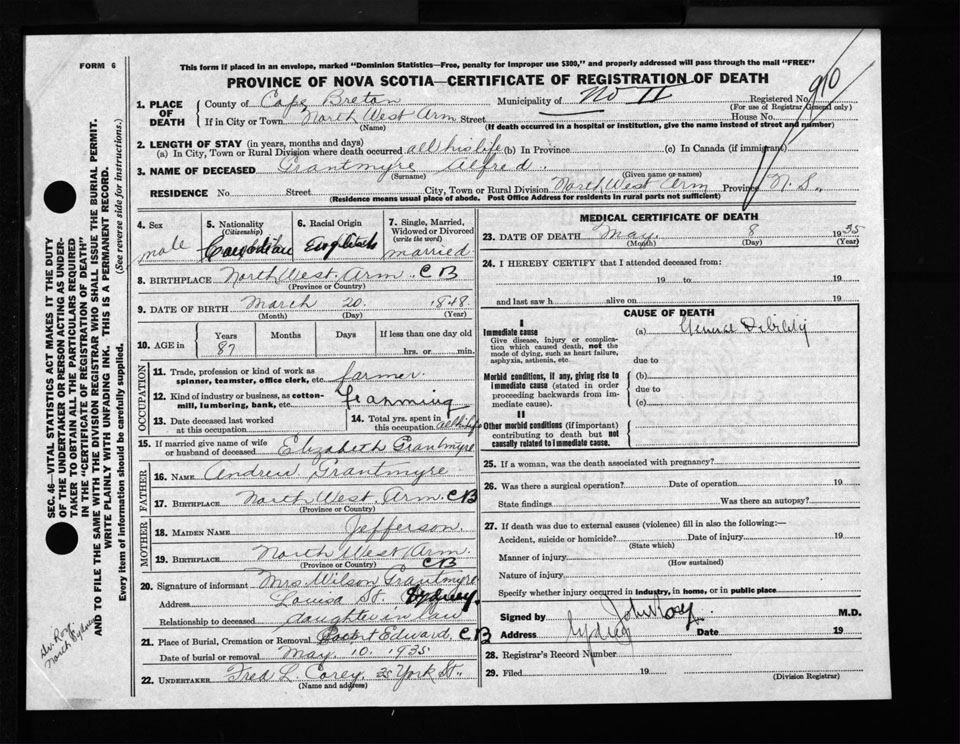 FORM 6
This form if placed in an envelope, marked "Dominion Statistics—Free, penalty for improper use $300," and properly addressed will pass through the mail "FREE"
PROVINCE OF NOVA SCOTIA—CERTIFICATE OF REGISTRATION OF DEATH
910
1. PLACE OF DEATH
County of Cape Breton Municipality of No 11 Registered No.
(For use of Registrar General only)
If in City or Town North West Arm Street House No.
(Name) (If death occurred in a hospital or institution, give the name instead of street and number)
2. LENGTH OF STAY (in years, months and days)
(a) In City, Town or Rural Division where death occurred all his life (b) In Province (c) In Canada (if immigrant)
3. NAME OF DECEASED Grantmyre Alfred.
(Surname) (Given name or names)
RESIDENCE No. Street City, Town or Rural Division North West Arm Province N. S.
(Residence means usual place of abode. Post Office Address for residents in rural parts not sufficient)
4. Sex male
5. Nationality (Citizenship) Canadian
6. Racial Origin English
7. Single, Married, Widowed or Divorced (write the word) married
8. BIRTHPLACE North West Arm CB
(Province or Country)
9. DATE OF BIRTH March 20. 1848.
(Month) (Day) (Year)
10. AGE in Years 87 Months Days If less than one day old
hrs. or min.
OCCUPATION
11. Trade, profession or kind of work as spinner, teamster, office clerk, etc. farmer.
12. Kind of industry or business, as cotton-mill, lumbering, bank, etc. Farming
13. Date deceased last worked at this occupation
14. Total yrs. spent in this occupation all his life
15. If married give name of wife or husband of deceased Elizabeth Grantmyre
FATHER
16. NAME Andrew Grantmyre
17. BIRTHPLACE North West Arm. CB
(Province or Country)
MOTHER
18. MAIDEN NAME Jefferson.
19. BIRTHPLACE North West Arm.
(Province or Country) CB
20. Signature of informant Mrs Wilson Grantmyre
Address Louisa St. Sydney.
Relationship to deceased daughter in law
21. Place of Burial, Cremation or Removal Edward, CB
Date of burial or removal May. 10. 1935
22. UNDERTAKER Fred L. Corey. 25 York St.,
(Name and address)
MEDICAL CERTIFICATE OF DEATH
23. DATE OF DEATH May. 8 1935
(Month) (Day) (Year)
24. I HEREBY CERTIFY that I attended deceased from:
19 to 19
and last saw h alive on 19
CAUSE OF DEATH
I
Immediate cause (a) General Debility
Give disease, injury or complication which caused death, not the mode of dying, such as heart failure, asphyxia, asthenia, etc.
due to
Morbid conditions, if any, giving rise to immediate cause (stated in order proceeding backwards from immediate cause).
(b)
due to
(c)
II
Other morbid conditions (if important) contributing to death but not causally related to immediate cause.
25. If a woman, was the death associated with pregnancy?
26. Was there a surgical operation? Date of operation 19
State findings Was there an autopsy?
27. If death was due to external causes (violence) fill in also the following:—
Accident, suicide or homicide? Date of injury 19
(State which)
Manner of injury
(How sustained)
Nature of injury
Specify whether injury occurred in industry, in home, or in public place
Signed by John Rosy M.D.
Address Sydney Date 19
28. Registrar's Record Number
29. Filed 19
(Division Registrar)
SEC. 46—VITAL STATISTICS ACT MAKES IT THE DUTY
OF THE UNDERTAKER OR PERSON ACTING AS UNDER-
TAKER TO OBTAIN ALL THE PARTICULARS REQUIRED
IN THE "CERTIFICATE OF REGISTRATION OF DEATH"
AND TO FILE THE SAME WITH THE DIVISION REGISTRAR WHO SHALL ISSUE THE BURIAL PERMIT.
WRITE PLAINLY WITH UNFADING INK. THIS IS A PERMANENT RECORD.
Every item of information should be carefully supplied. (See reverse side for instructions.)
North Sydney